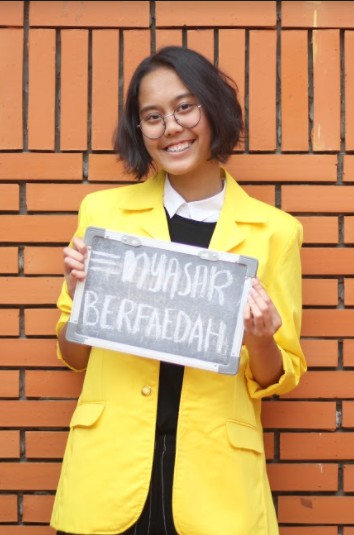 #NYASAR
BERFAEDAH